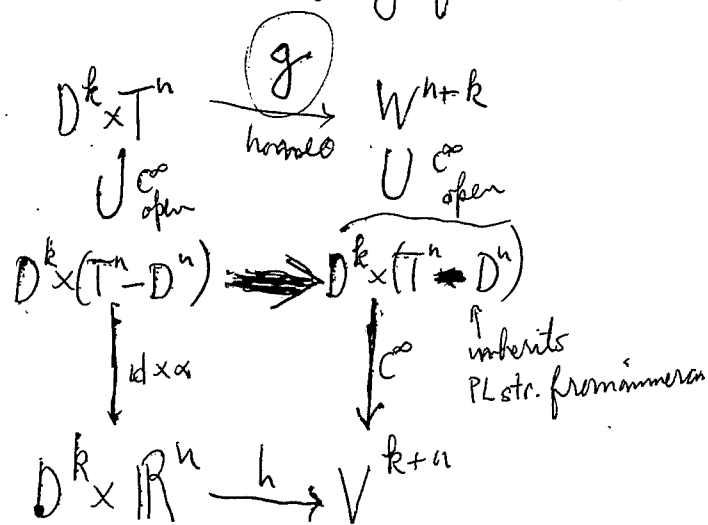 g
D^k × T^n → W^{n+k}
homeo
∪ C^∞ open ∪ C^∞ open
D^k × (T^n − D^n) → D^k × (T^n − D^n)
id × α C^∞ ↑ inherits
PL str. from immersion
D^k × ℝ^n h → V^{k+n}